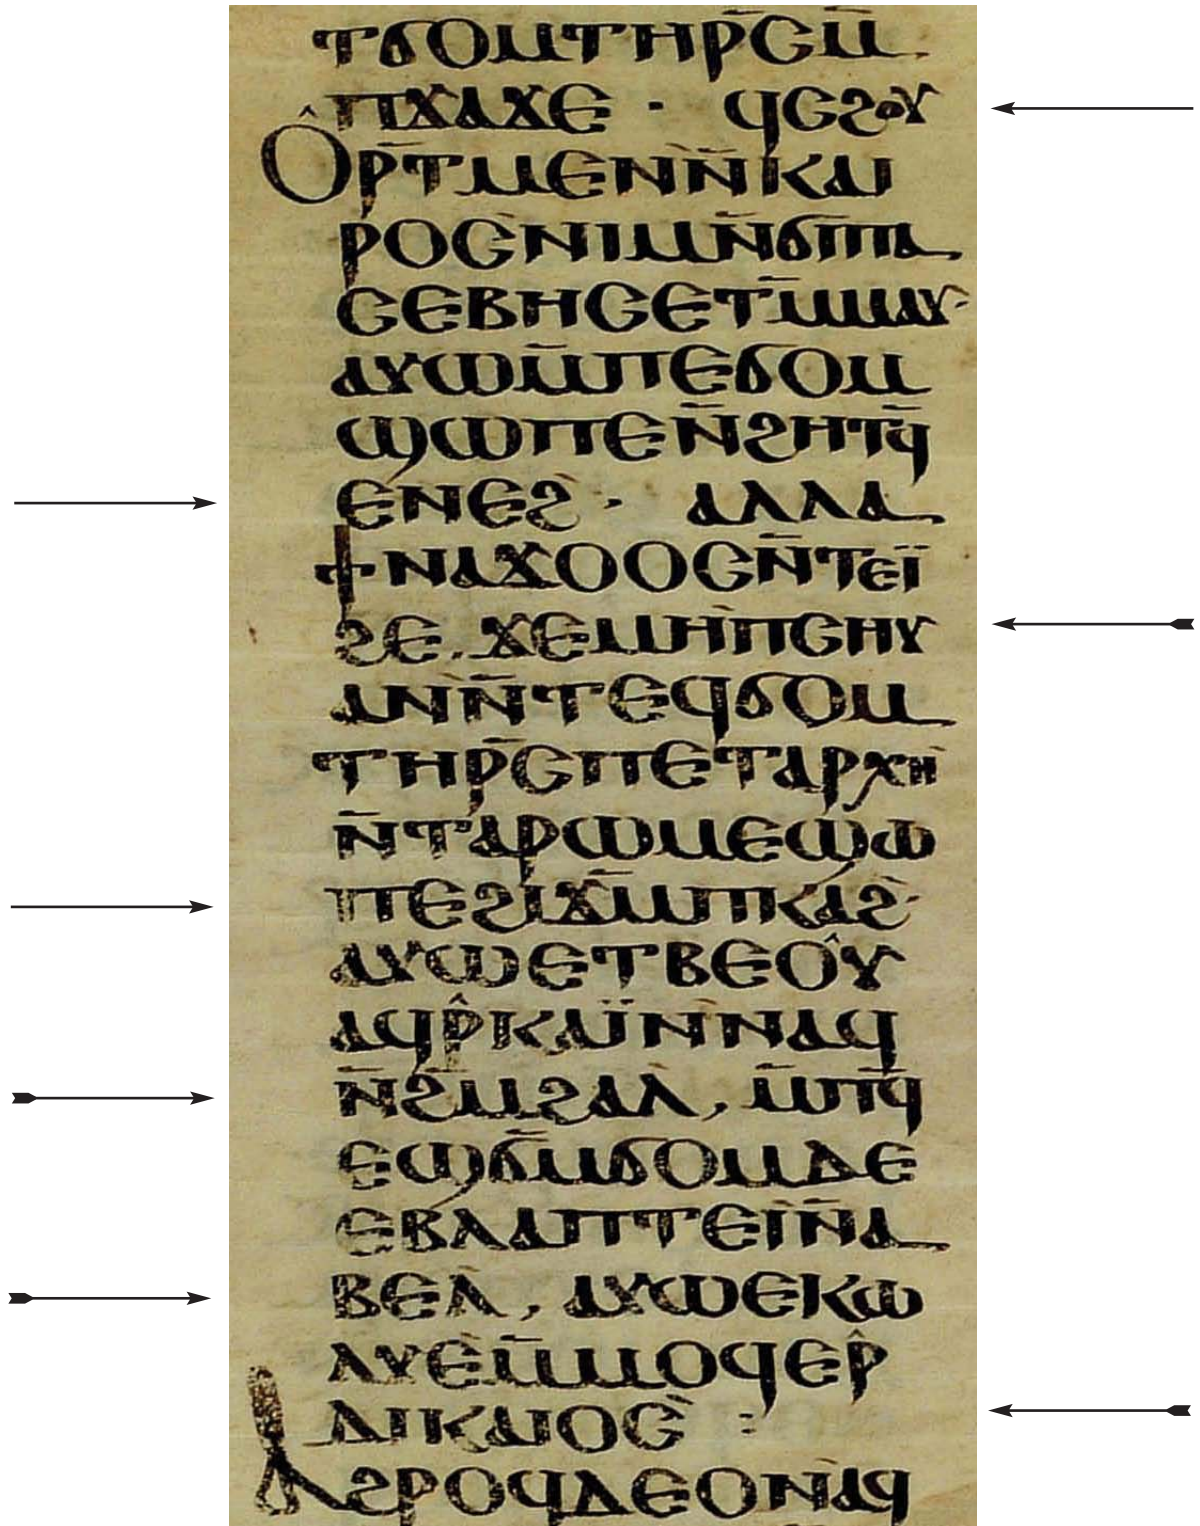 ⲧϭⲟⲙⲧⲏⲣ̅ⲥⲙ̅
ⲡϫⲁϫⲉ · ϥⲥϩⲟⲩ
ⲟ̂ⲣⲧ̅ⲙⲉⲛⲛ̅ⲕⲁⲓ
ⲣⲟⲥⲛⲓⲙⲛ̅ϭⲓⲡⲁ
ⲥⲉⲃⲏⲥⲉⲧⲙ̅ⲙⲁⲩ·
ⲁⲩⲱⲙ̅ⲡⲉϭⲟⲙ
ϣⲱⲡⲉⲛ̅ϩⲏⲧϥ̅
ⲉⲛⲉϩ · ⲁⲗⲗⲁ
ϯⲛⲁϫⲟⲟⲥⲛ̅ⲧⲉⲓ̈
ϩⲉ, ϫⲉⲙⲏⲡⲥⲏⲩ
ⲁⲛⲛ̅ⲧⲉϥϭⲟⲙ
ⲧⲏⲣ̅ⲥⲡⲉⲧⲁⲣⲭⲏ
ⲛ̅ⲧⲁⲣⲱⲙⲉϣⲱ
ⲡⲉϩⲓϫⲙ̅ⲡⲕⲁϩ·
ⲁⲩⲱⲉⲧⲃⲉⲟ̂ⲩ
ⲁϥⲣ̂ⲕⲁⲓ̈ⲛⲛⲁϥ
ⲛ̅ϩⲙ̅ϩⲁⲗ, ⲙ̅ⲡϥ̅
ⲉϣϭⲙ̅ϭⲟⲙⲇⲉ
ⲉⲃⲗⲁⲡⲧⲉⲓⲛ̅ⲁ
ⲃⲉⲗ, ⲁⲩⲱⲉⲕⲱ
ⲗⲩⲉⲙ̅ⲙⲟϥⲉⲣ̂
ⲇⲓⲕⲁⲓⲟⲥ :
ⲁϩⲣⲟϥⲇⲉⲟⲛⲁϥ